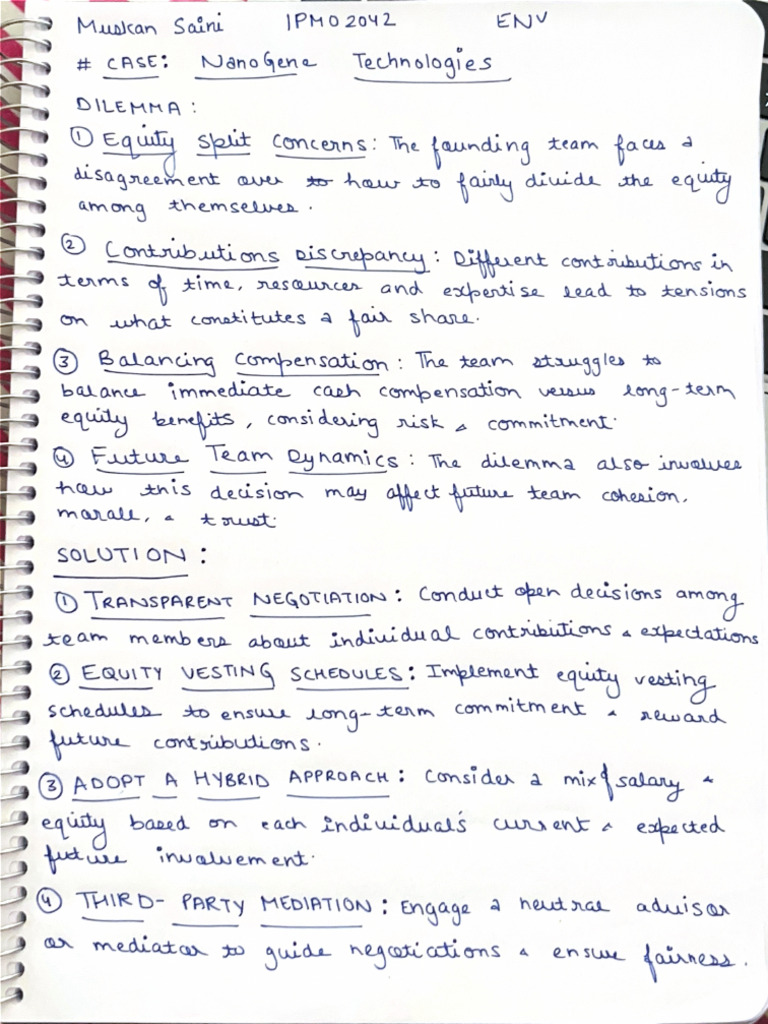 Muskan Saini IPM02042 ENV
# CASE: NanoGene Technologies
DILEMMA:
① Equity split concerns: The founding team faces a
disagreement over to how to fairly divide the equity
among themselves.
② Contributions Discrepancy: Different contributions in
terms of time, resources and expertise lead to tensions
on what constitutes a fair share.
③ Balancing Compensation: The team struggles to
balance immediate cash compensation versus long-term
equity benefits, considering risk & commitment.
④ Future Team Dynamics: The dilemma also involves
how this decision may affect future team cohesion,
morale, & trust.
SOLUTION:
① TRANSPARENT NEGOTIATION: Conduct open decisions among
team members about individual contributions & expectations
② EQUITY VESTING SCHEDULES: Implement equity vesting
schedules to ensure long-term commitment & reward
future contributions.
③ ADOPT A HYBRID APPROACH: Consider a mix of salary &
equity based on each individual's current & expected
future involvement.
④ THIRD-PARTY MEDIATION: Engage a neutral advisor
or mediator to guide negotiations & ensure fairness.